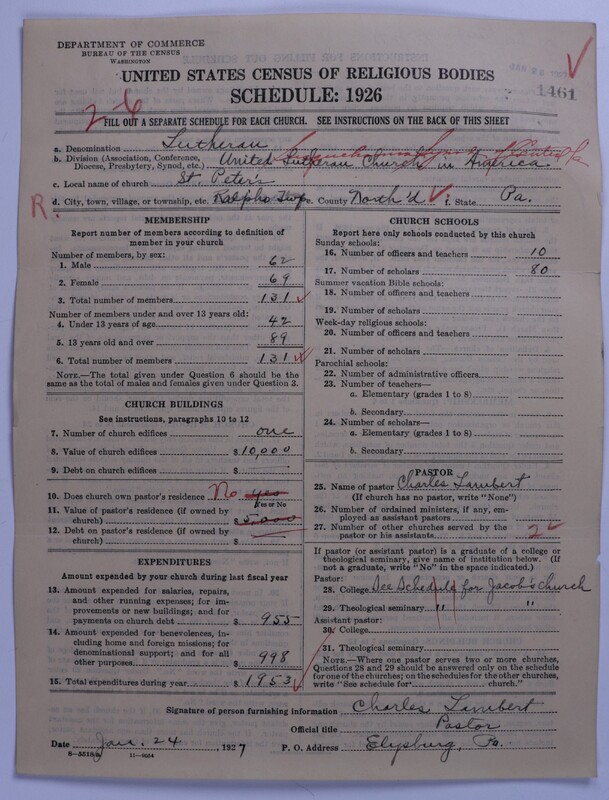 DEPARTMENT OF COMMERCE
BUREAU OF THE CENSUS
WASHINGTON
UNITED STATES CENSUS OF RELIGIOUS BODIES
SCHEDULE: 1926
1461
2-6
FILL OUT A SEPARATE SCHEDULE FOR EACH CHURCH. SEE INSTRUCTIONS ON THE BACK OF THIS SHEET
a. Denomination Lutheran
b. Division (Association, Conference, Diocese, Presbytery, Synod, etc.) United Lutheran Church in America
c. Local name of church St. Peter's
R. d. City, town, village, or township, etc. Ralpho Twp e. County North'd f. State Pa.
MEMBERSHIP
Report number of members according to definition of
member in your church
Number of members, by sex:
1. Male 62
2. Female 69
3. Total number of members 131
Number of members under and over 13 years old:
4. Under 13 years of age 42
5. 13 years old and over 89
6. Total number of members 131
NOTE.—The total given under Question 6 should be
same as the total of males and females given under Question 3.
CHURCH BUILDINGS
See instructions, paragraphs 10 to 12
7. Number of church edifices one
8. Value of church edifices $10,000
9. Debt on church edifices $
10. Does church own pastor's residence No Yes
Yes or No
11. Value of pastor's residence (if owned by
church) $3,000
12. Debt on pastor's residence (if owned by
church) $
EXPENDITURES
Amount expended by your church during last fiscal year
13. Amount expended for salaries, repairs,
and other running expenses; for improvements or new buildings; and for
payments on church debt $ 955
14. Amount expended for benevolences, including home and foreign missions; for
denominational support; and for all
other purposes $ 998
15. Total expenditures during year $ 1953
CHURCH SCHOOLS
Report here only schools conducted by this church
Sunday schools:
16. Number of officers and teachers 10
17. Number of scholars 80
Summer vacation Bible schools:
18. Number of officers and teachers
19. Number of scholars
Week-day religious schools:
20. Number of officers and teachers
21. Number of scholars
Parochial schools:
22. Number of administrative officers
23. Number of teachers—
a. Elementary (grades 1 to 8)
b. Secondary
24. Number of scholars—
a. Elementary (grades 1 to 8)
b. Secondary
PASTOR
25. Name of pastor Charles Lambert
(If church has no pastor, write "None")
26. Number of ordained ministers, if any, employed as assistant pastors
27. Number of other churches served by the
pastor or his assistants 2
If pastor (or assistant pastor) is a graduate of a college or
theological seminary, give name of institution below. (If
not a graduate, write "No" in the space indicated.)
Pastor:
28. College See Schedule for Jacob's Church
29. Theological seminary " "
Assistant pastor:
30. College
31. Theological seminary
NOTE.—Where one pastor serves two or more churches,
Questions 28 and 29 should be answered only on the schedule
for one of the churches; on the schedules for the other churches,
write "See schedule for church."
Signature of person furnishing information Charles Lambert
Official title Pastor
Date Jan. 24, 1927 P. O. Address Elysburg, Pa.
8-5518a 11-9624